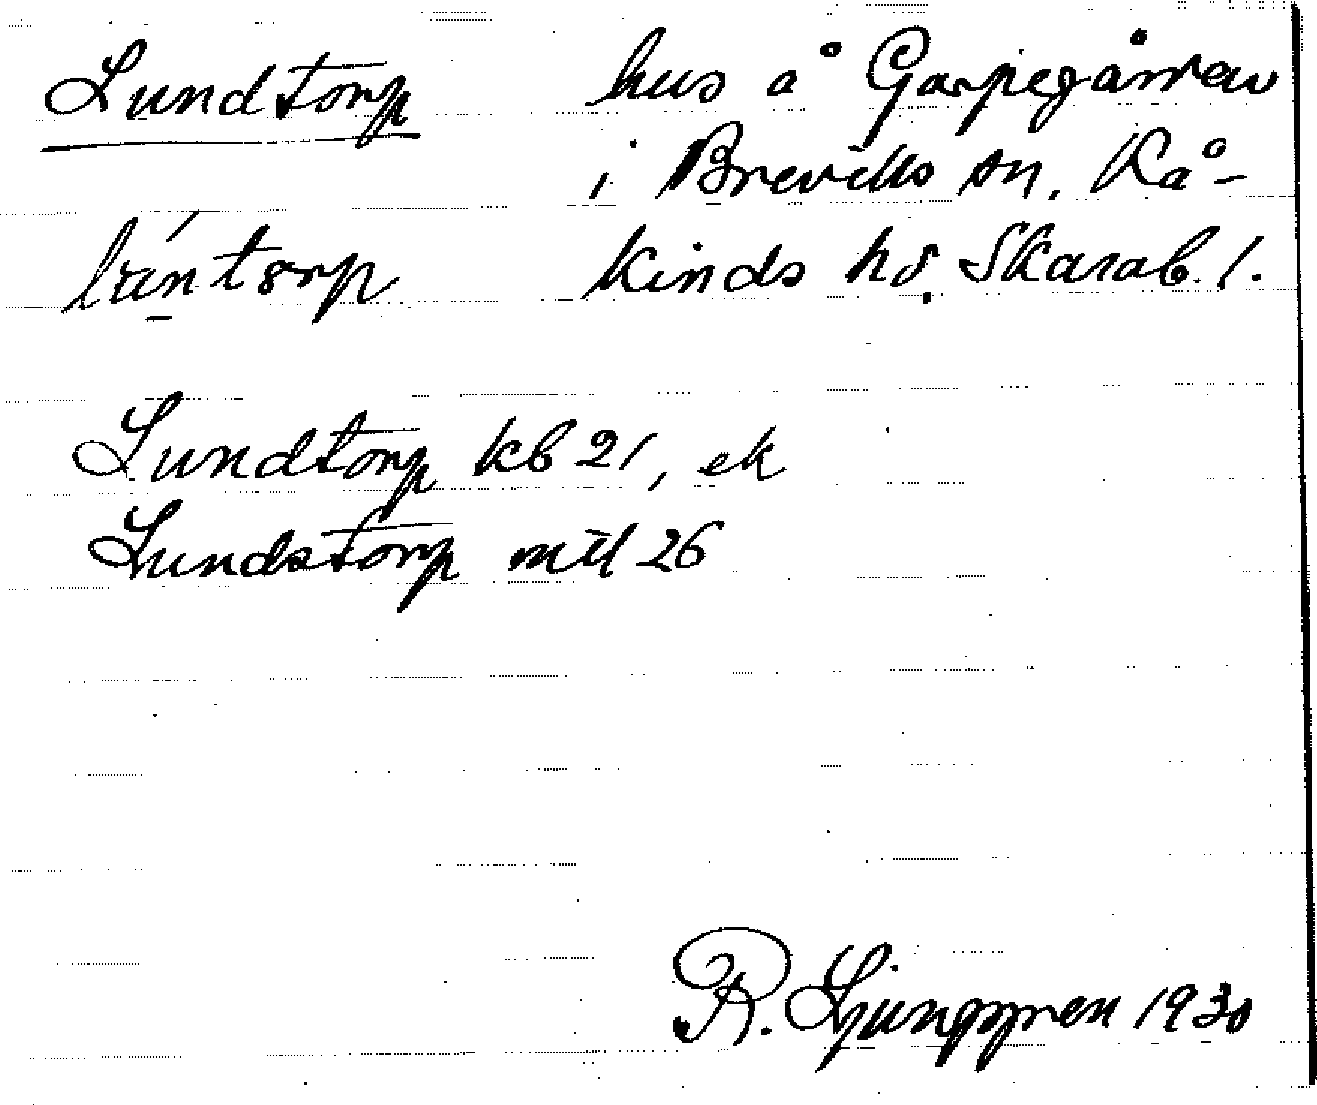 Lundtorp hus å Garpegården
i Breviks sn. Kå-
kinds hd. Skarab. l.
Lundtorp kb 21, ek
Lundstorp mtl 26
R. Ljunggren 1930